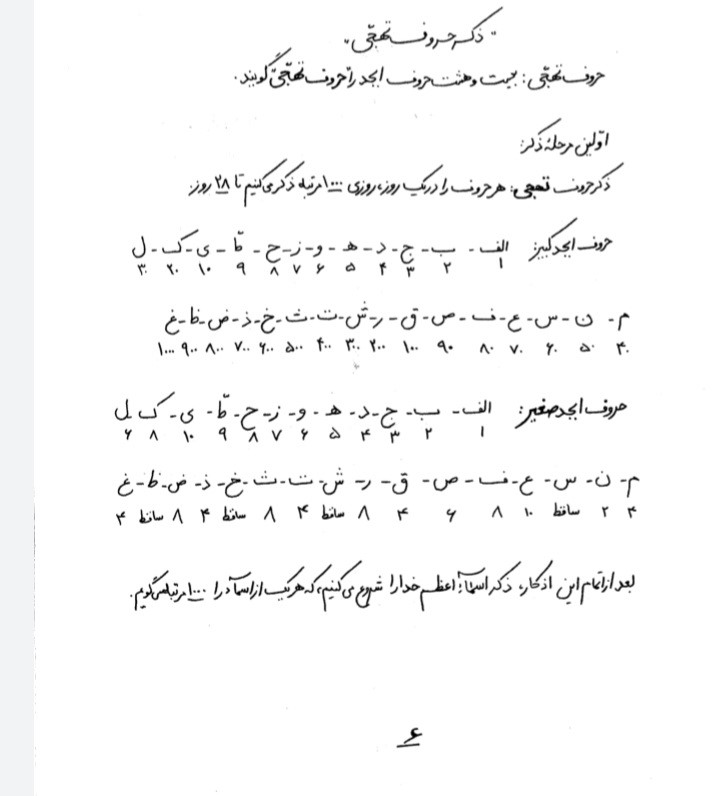 "ذکر حروف تهجّی"
حروف تهجّی: بیست و هشت حروف ابجد را حروف تهجّی گویند.
اوّلین مرحلهٔ ذکر:
ذکر حروف تهجی: هر حروف را در یک روز، روزی ۱۰۰۰ مرتبه ذکر می کنیم تا ۲۸ روز.
حروف ابجد کبیر: الف - ب - ج - د - هـ - و - ز - ح - ط - ی - ک - ل
۱ ۲ ۳ ۴ ۵ ۶ ۷ ۸ ۹ ۱۰ ۲۰ ۳۰
م - ن - س - ع - ف - ص - ق - ر - ش - ت - ث - خ - ذ - ض - ظ - غ
۴۰ ۵۰ ۶۰ ۷۰ ۸۰ ۹۰ ۱۰۰ ۲۰۰ ۳۰۰ ۴۰۰ ۵۰۰ ۶۰۰ ۷۰۰ ۸۰۰ ۹۰۰ ۱۰۰۰
حروف ابجد صغیر: الف - ب - ج - د - هـ - و - ز - ح - ط - ی - ک - ل
۱ ۲ ۳ ۴ ۵ ۶ ۷ ۸ ۹ ۱۰ ۸ ۶
م - ن - س - ع - ف - ص - ق - ر - ش - ت - ث - خ - ذ - ض - ظ - غ
۴ ۲ ساقط ۱۰ ۸ ۶ ۴ ۸ ساقط ۴ ۸ ساقط ۴ ۸ ساقط ۴
بعد از اتمام این اذکار، ذکر اسماء اعظم خدا را شروع می کنیم، که هر یک از اسماء را ۱۰۰۰ مرتبه می گویم.
۶